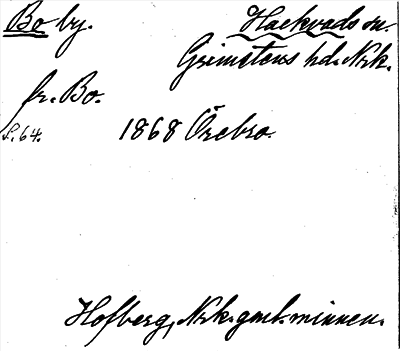 Bo by. Hackvads sn.
Grimstens hd. Nrk.
fr. Bo.
S. 64. 1868 Örebro.
Hofberg, Nrk. gml. minnen.